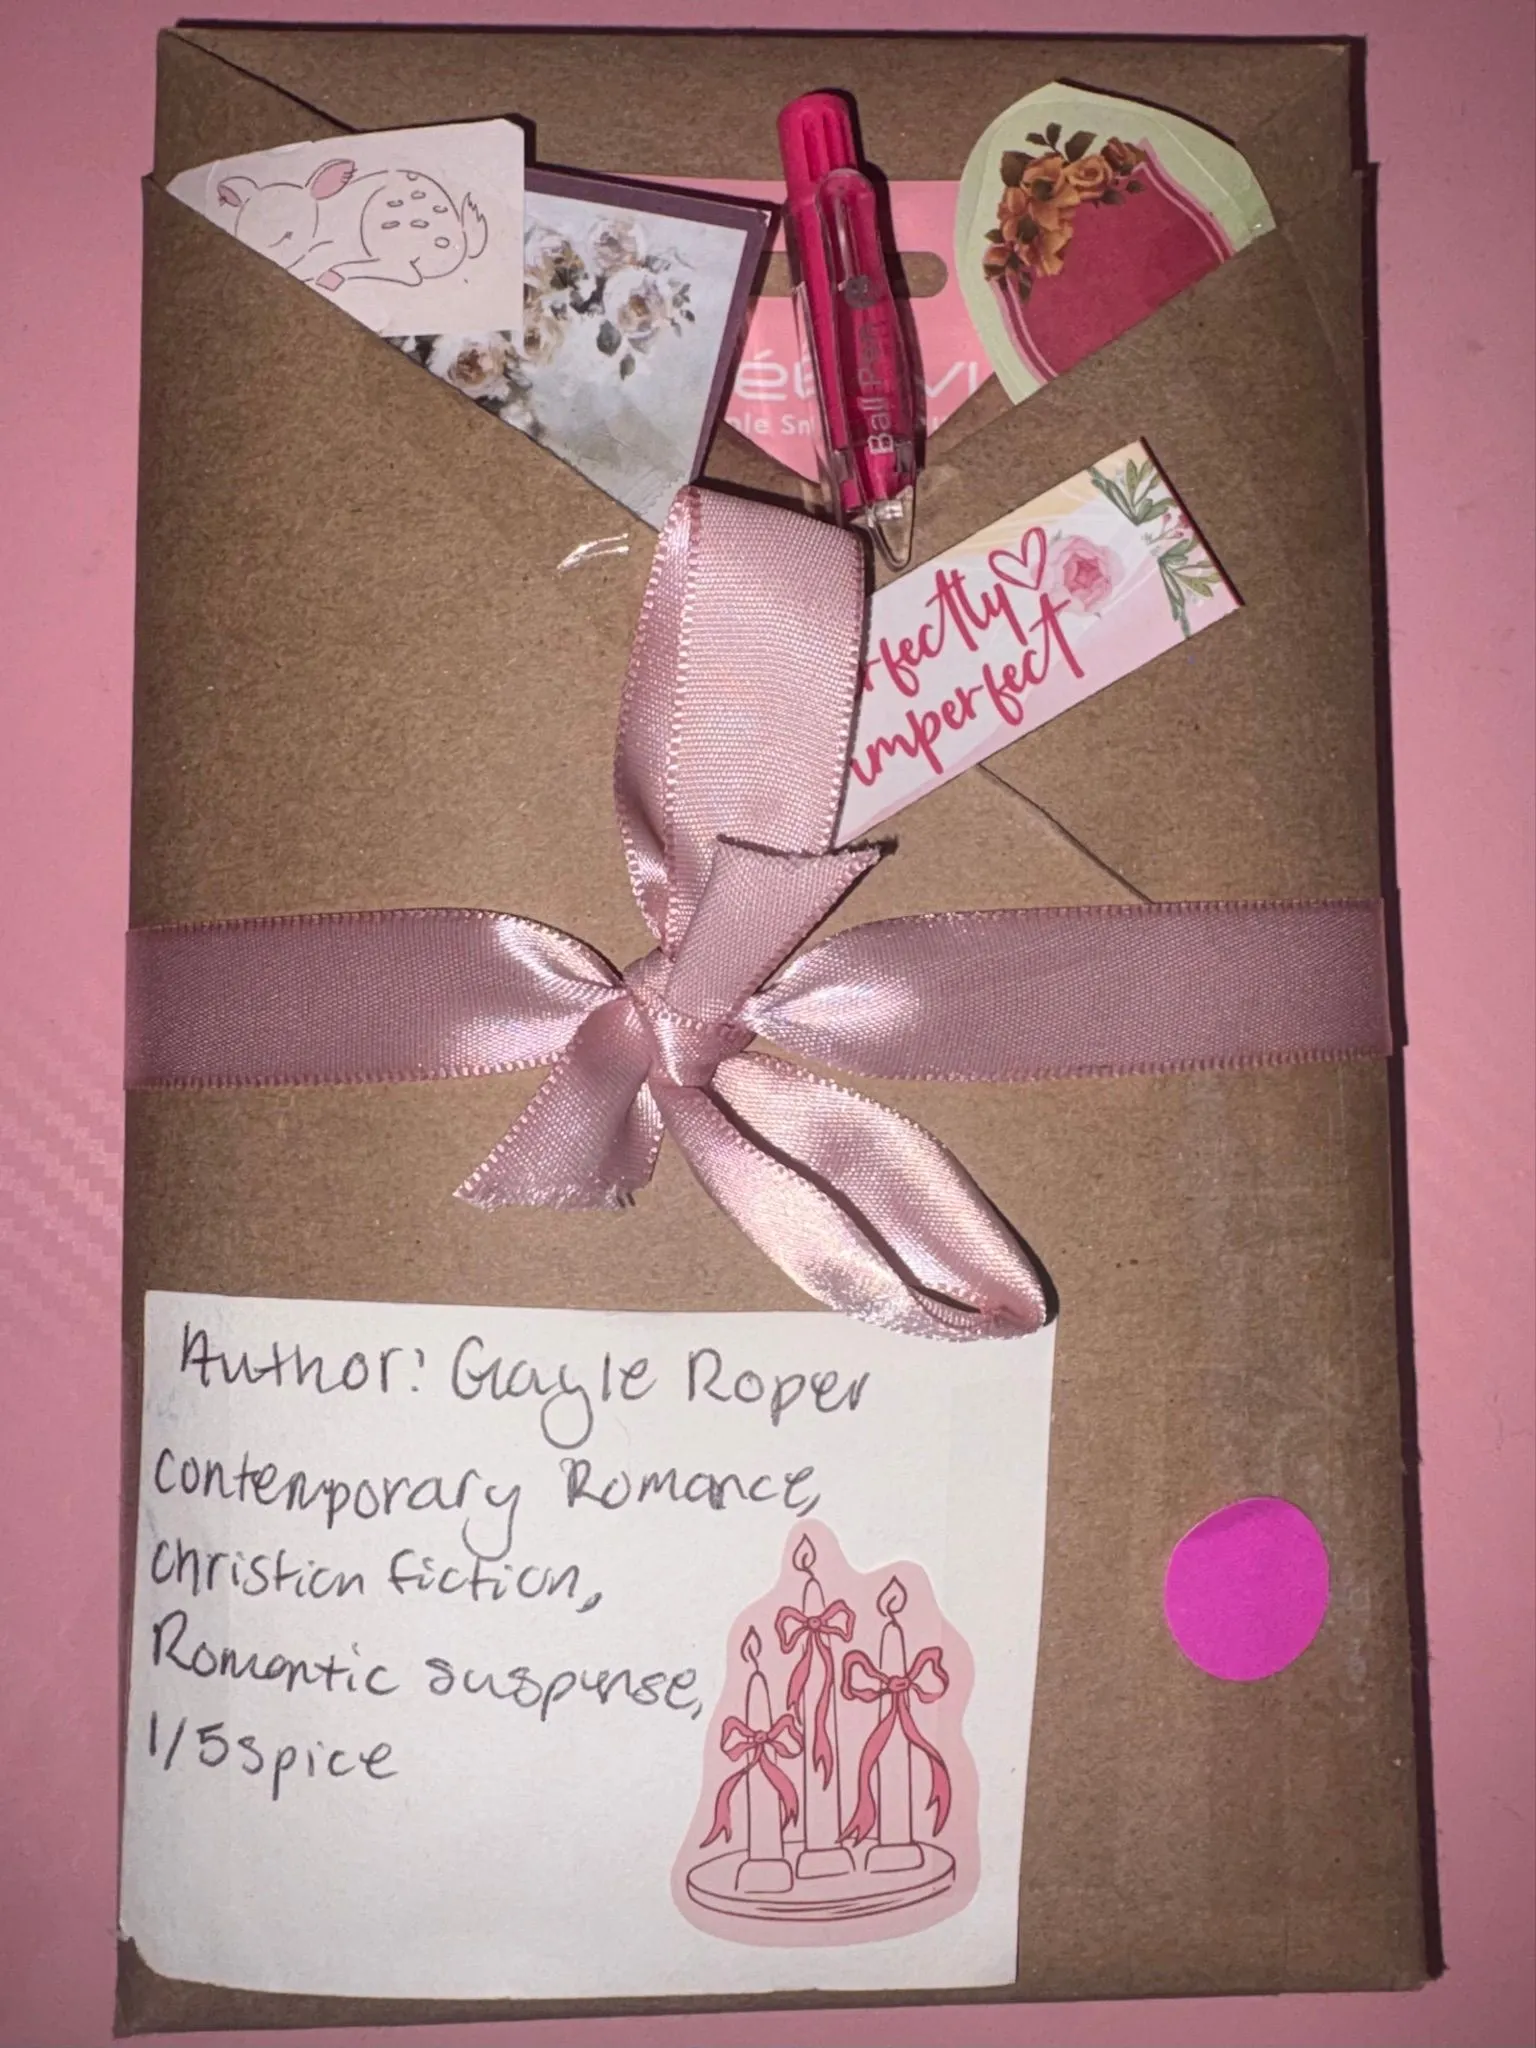 Ball Pen
rfectly
imperfect
Author: Gayle Roper
contemporary Romance,
christian fiction,
Romantic suspense,
1/5 spice